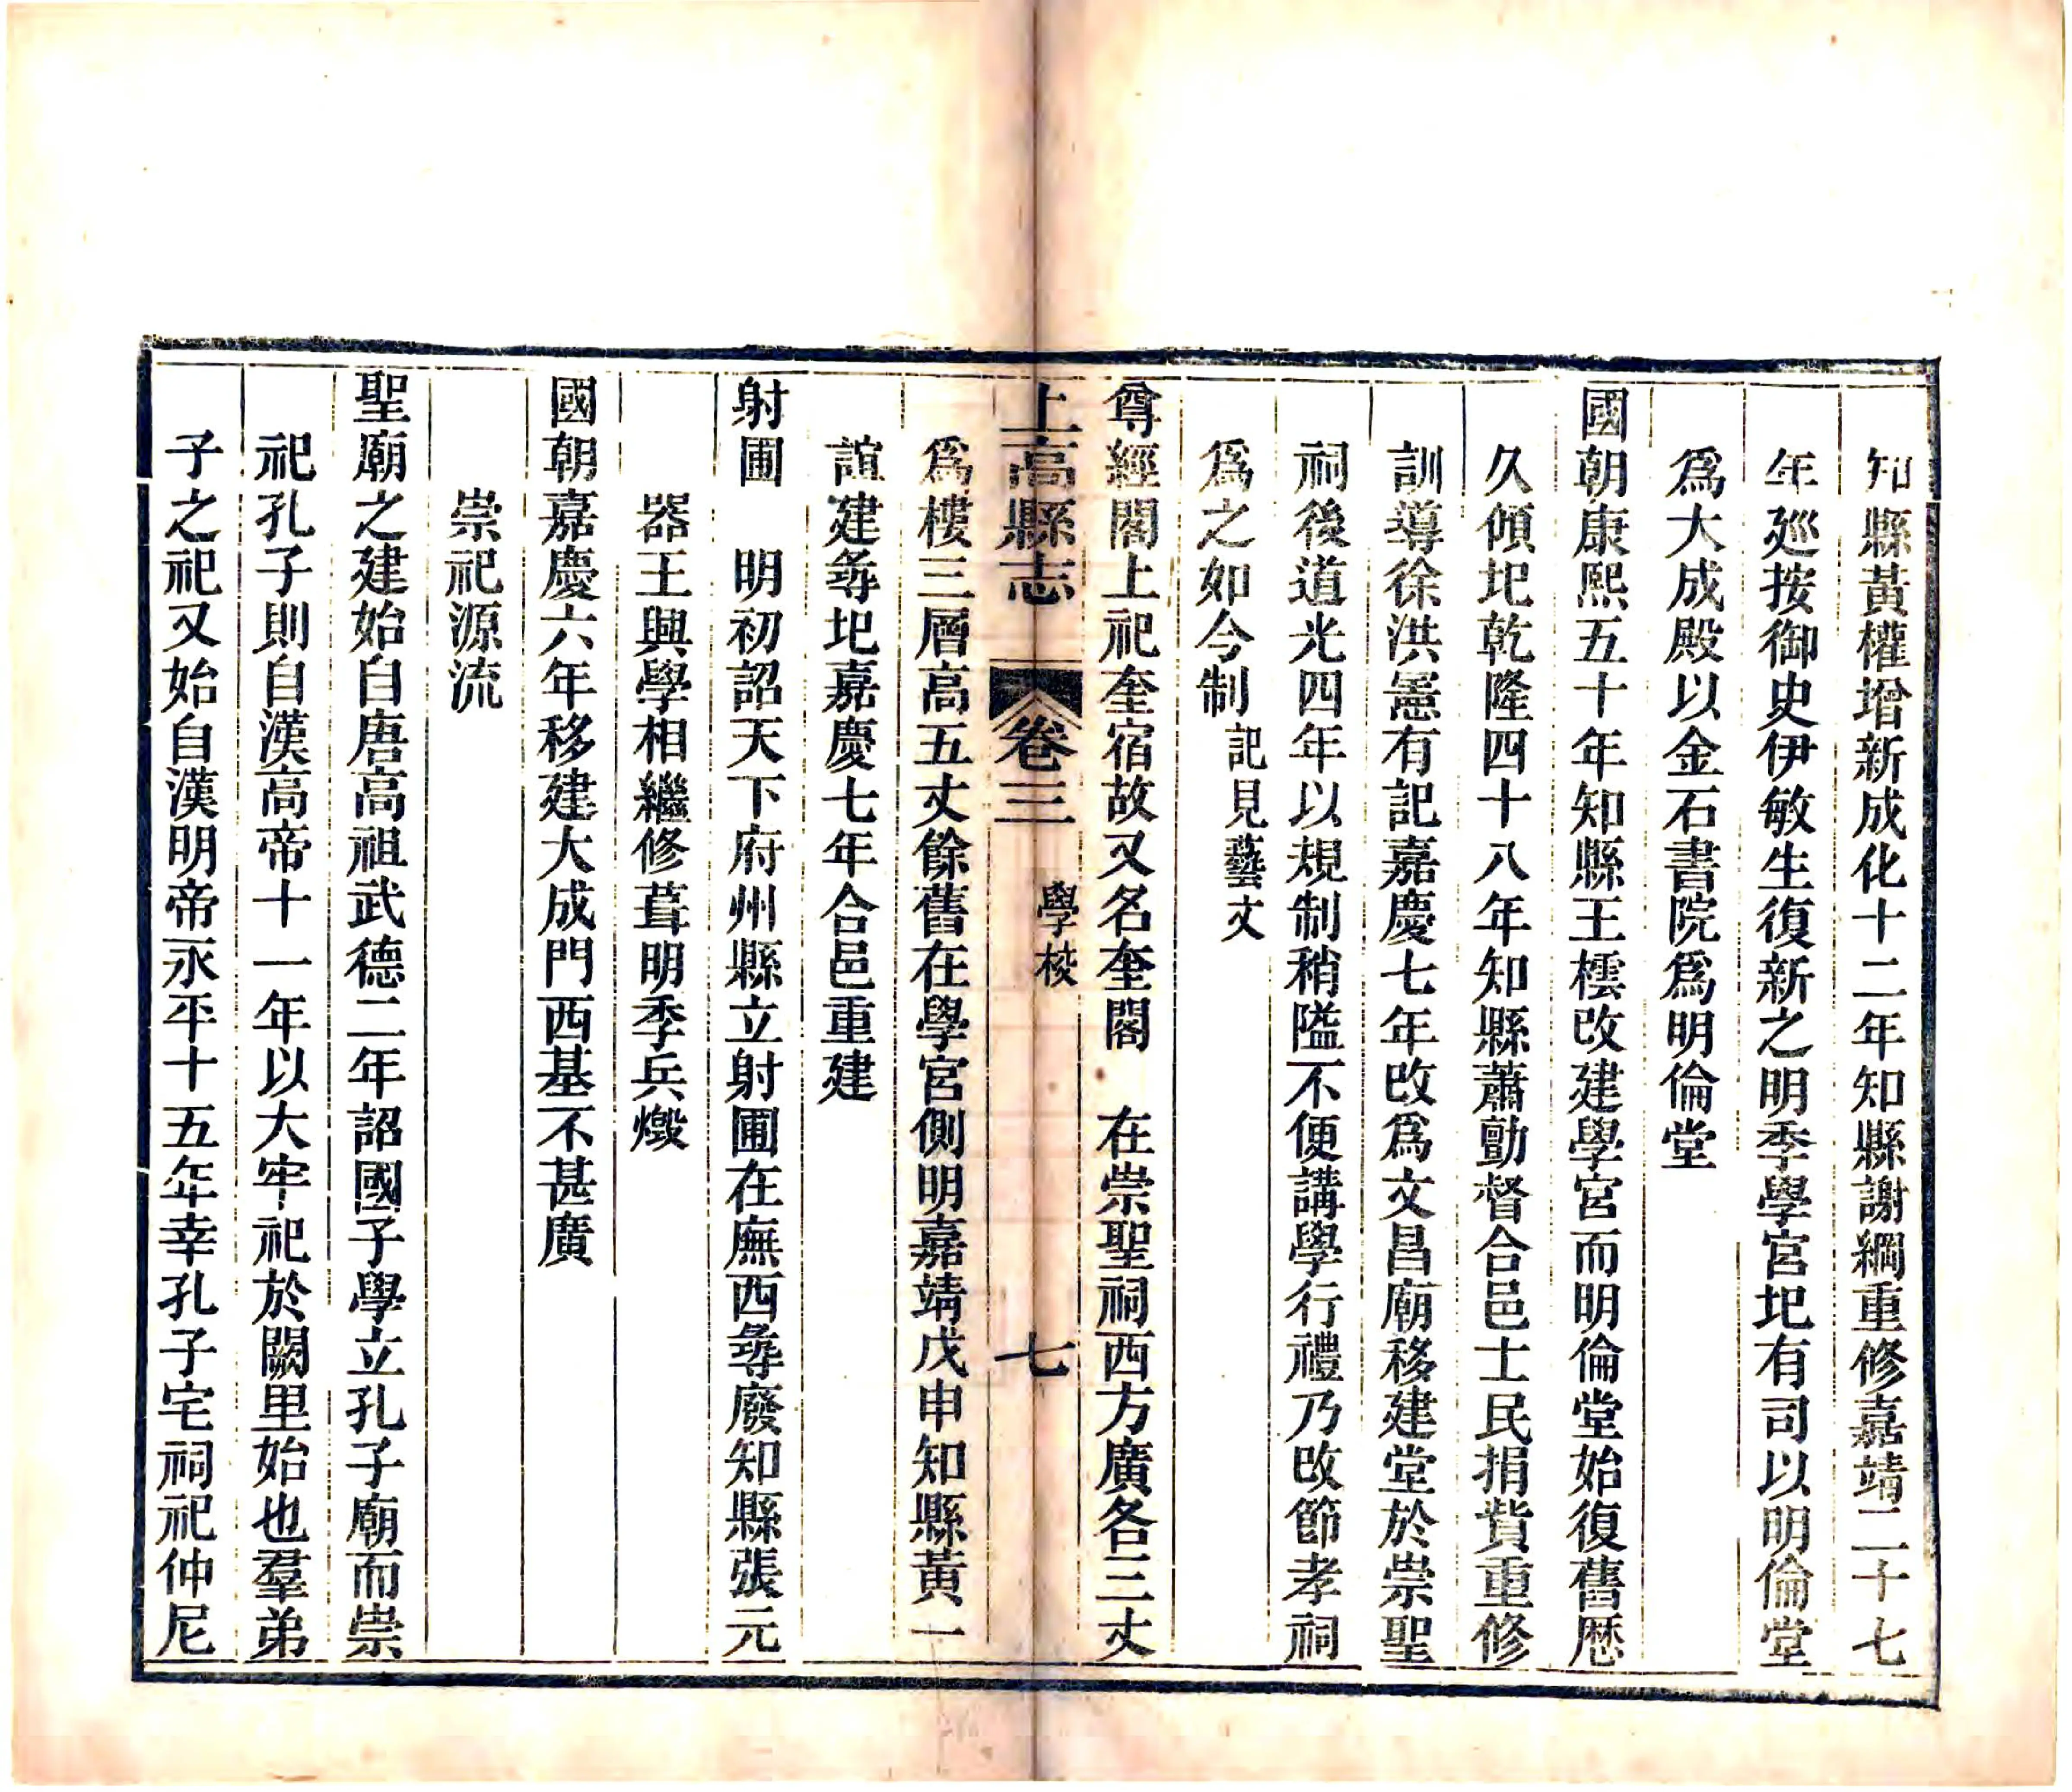 知縣黃權增新成化十二年知縣謝綱重修嘉靖二十七
年廵按御史伊敏生復新之明季學宮圯有司以明倫堂
爲大成殿以金石書院爲明倫堂
國朝康熙五十年知縣王橒改建學宮而明倫堂始復舊歴
久傾圯乾隆四十八年知縣蕭勳督合邑士民捐貲重修
訓導徐洪慝有記嘉慶七年改爲文昌廟移建堂於崇聖
祠後道光四年以規制稍隘不便講學行禮乃改節孝祠
爲之如今制記見藝文
尊經閣上祀奎宿故又名奎閣 在崇聖祠西方廣各三丈
上高縣志 卷三 學校 七
爲樓三層高五丈餘舊在學宮側明嘉靖戊申知縣黃一
誼建尋圯嘉慶七年合邑重建
射圃 明初詔天下府州縣立射圃在廡西尋廢知縣張元
器王興學相繼修葺明季兵燬
國朝嘉慶六年移建大成門西基不甚廣
崇祀源流
聖廟之建始自唐高祖武德二年詔國子學立孔子廟而崇
祀孔子則自漢高帝十一年以大牢祀於闕里始也羣弟
子之祀又始自漢明帝永平十五年幸孔子宅祠祀仲尼